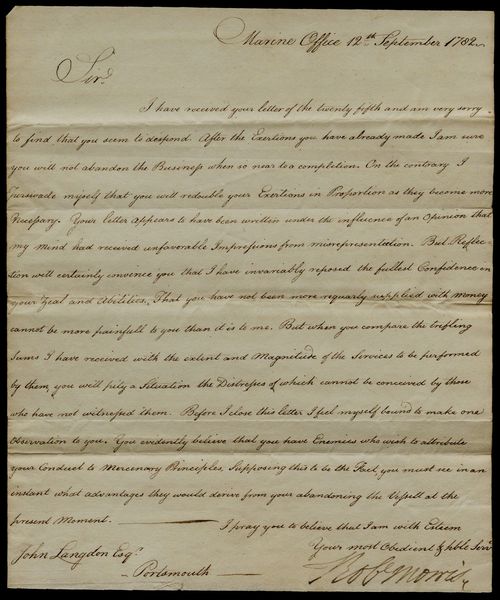 Marine Office 12th September 1782
Sir,
I have received your letter of the twenty fifth and am very sorry
to find that you seem to despond. After the Exertions you have already made I am sure
you will not abandon the Business when so near to a completion. On the contrary I
perswade myself that you will redouble your Exertions in Proportion as they become more
necessary. Your letter appears to have been written under the influence of an opinion that
my mind had received unfavorable Impressions from misrepresentation. But Reflec-
tion will certainly convence you that I have invariably reposed the fullest Confidence in
your Zeal and Abilities. That you have not been more regularly supplied with money
cannot be more painfull to you than it is to me. But when you compare the trifling
Sums I have received with the extent and Magnitude of the Services to be performed
by them you will pity a Situation the Distresses of which cannot be conceived by those
who have not witnessed them. Before I close this letter I feel myself bound to make one
observation to you. You evidently believe that you have Enemies who wish to attribute
your Conduct to Mercenary Principles, Supposing this to be the Fact, you must see in an
instant what advantages they would derive from your abandoning the Vessell at the
present Moment.
I pray you to believe that I am with Esteem
Your most Obedient & hble Serv
John Langdon Esqr.
Portsmouth
Robt Morris